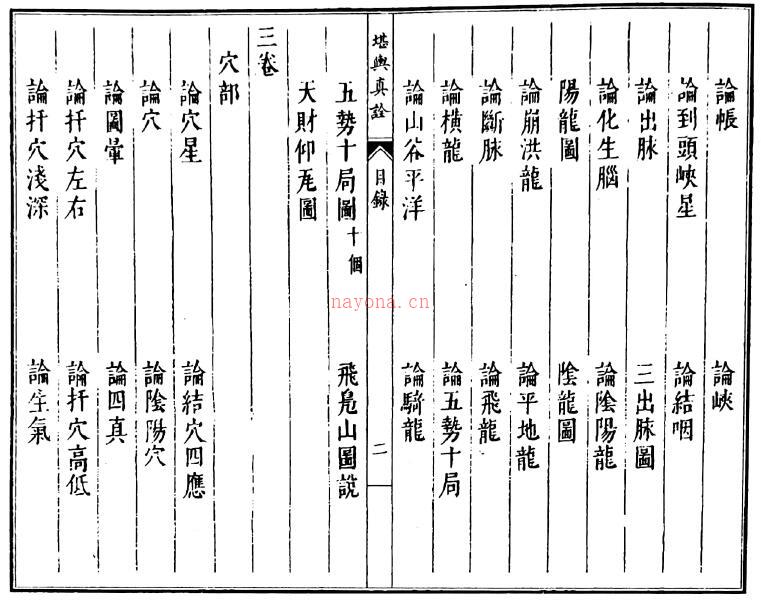 論帳 論峽
論到頭峽星 論結咽
論出脉 三出脉圖
論化生腦 論陰陽龍
陽龍圖 陰龍圖
論崩洪龍 論平地龍
論斷脉 論飛龍
論橫龍 論五勢十局
論山谷平洋 論騎龍
堪輿真詮 目錄 二
五勢十局圖十個 飛鳬山圖說
天財仰瓦圖
三卷
穴部
論穴星 論結穴四應
論穴 論陰陽穴
論圖暈 論四真
論扦穴左右 論扦穴高低
論扦穴淺深 論生氣
nayona.cn